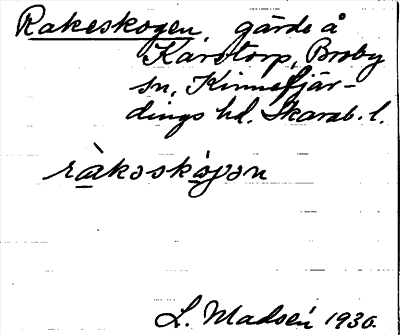 Rakeskogen, gärde å
Karstorp, Broby
sn, Kinnefjär-
dings hd. Skarab. l.
ràkəskó̱gən
L. Madsén 1930.